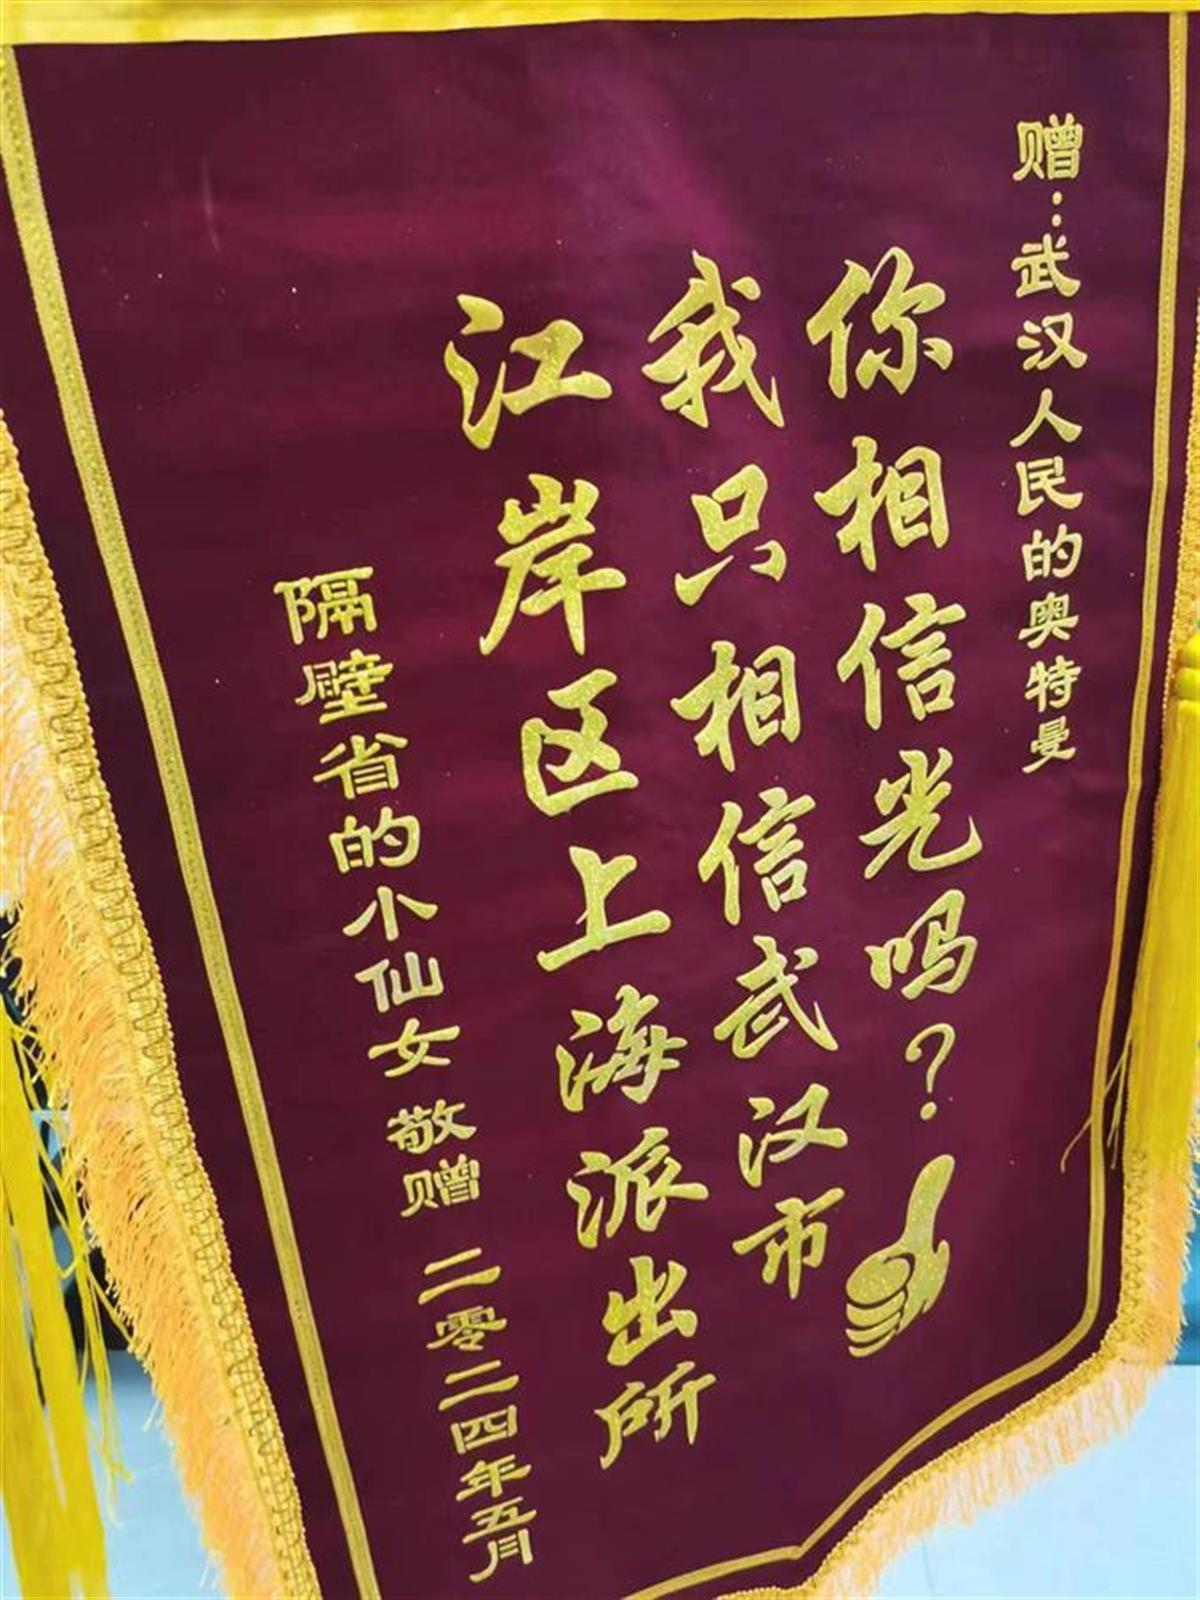 赠:武汉人民的奥特曼
你相信光吗?
我只相信武汉市
江岸区上海派出所
隔壁省的小仙女 敬赠 二零二四年五月